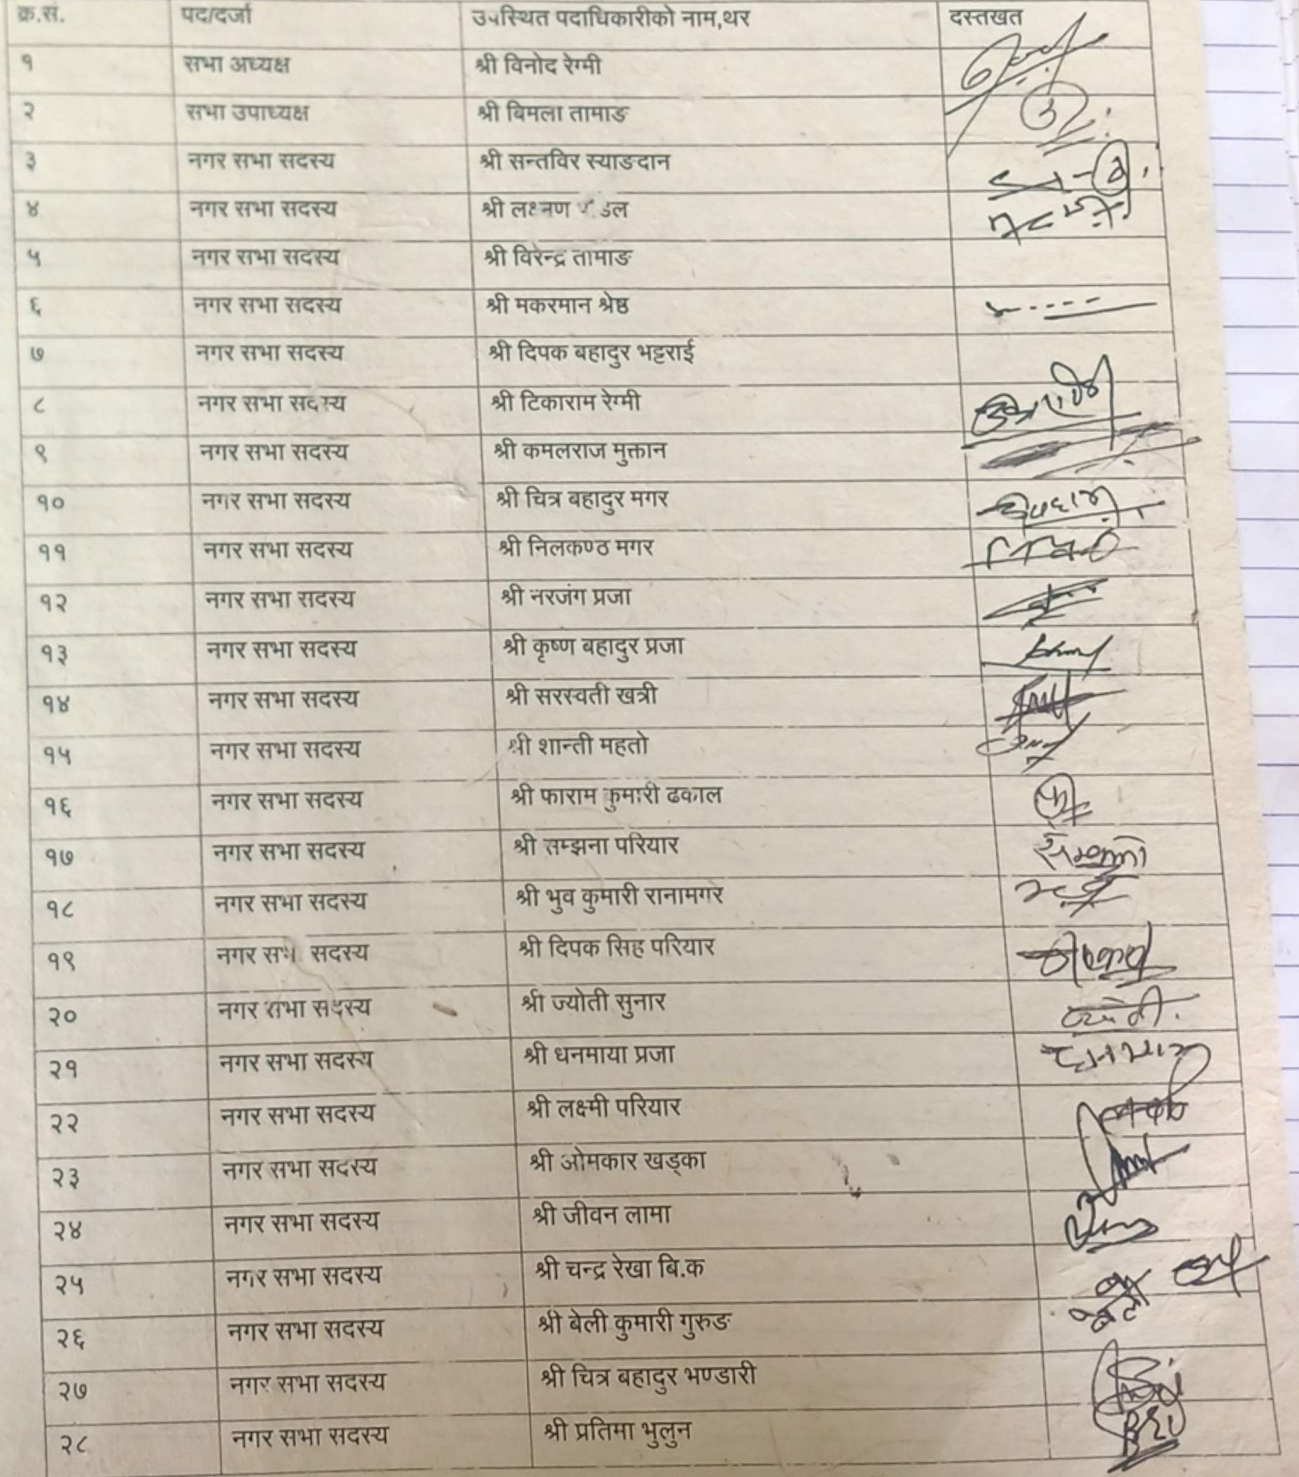 क्र.सं. पद/दर्जा उपस्थित पदाधिकारीको नाम,थर दस्तखत
१ सभा अध्यक्ष श्री विनोद रेग्मी
२ सभा उपाध्यक्ष श्री बिमला तामाङ
३ नगर सभा सदस्य श्री सन्तविर स्याङदान
४ नगर सभा सदस्य श्री
५ नगर सभा सदस्य श्री विरेन्द्र तामाङ
६ नगर सभा सदस्य श्री मकरमान श्रेष्ठ
७ नगर सभा सदस्य श्री दिपक बहादुर भट्टराई
८ नगर सभा सदस्य श्री टिकाराम रेग्मी
९ नगर सभा सदस्य श्री कमलराज मुक्तान
१० नगर सभा सदस्य श्री चित्र बहादुर मगर
११ नगर सभा सदस्य श्री निलकण्ठ मगर
१२ नगर सभा सदस्य श्री नरजंग प्रजा
१३ नगर सभा सदस्य श्री कृष्ण बहादुर प्रजा
१४ नगर सभा सदस्य श्री सरस्वती खत्री
१५ नगर सभा सदस्य श्री शान्ती महतो
१६ नगर सभा सदस्य श्री फाराम कुमारी ढकाल
१७ नगर सभा सदस्य श्री सम्झना परियार
१८ नगर सभा सदस्य श्री भुव कुमारी रानामगर
१९ नगर सभा सदस्य श्री दिपक सिह परियार
२० नगर सभा सदस्य श्री ज्योती सुनार
२१ नगर सभा सदस्य श्री धनमाया प्रजा
२२ नगर सभा सदस्य श्री लक्ष्मी परियार
२३ नगर सभा सदस्य श्री ओमकार खड्का
२४ नगर सभा सदस्य श्री जीवन लामा
२५ नगर सभा सदस्य श्री चन्द्र रेखा बि.क
२६ नगर सभा सदस्य श्री बेली कुमारी गुरुङ
२७ नगर सभा सदस्य श्री चित्र बहादुर भण्डारी
२८ नगर सभा सदस्य श्री प्रतिमा भुलुन